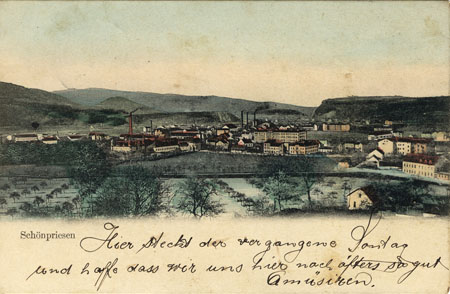 Schönpriesen
Hier steckt der vergangene Sonntag
und hoffe dass wir uns hier noch öfters so gut
Amüsiren.